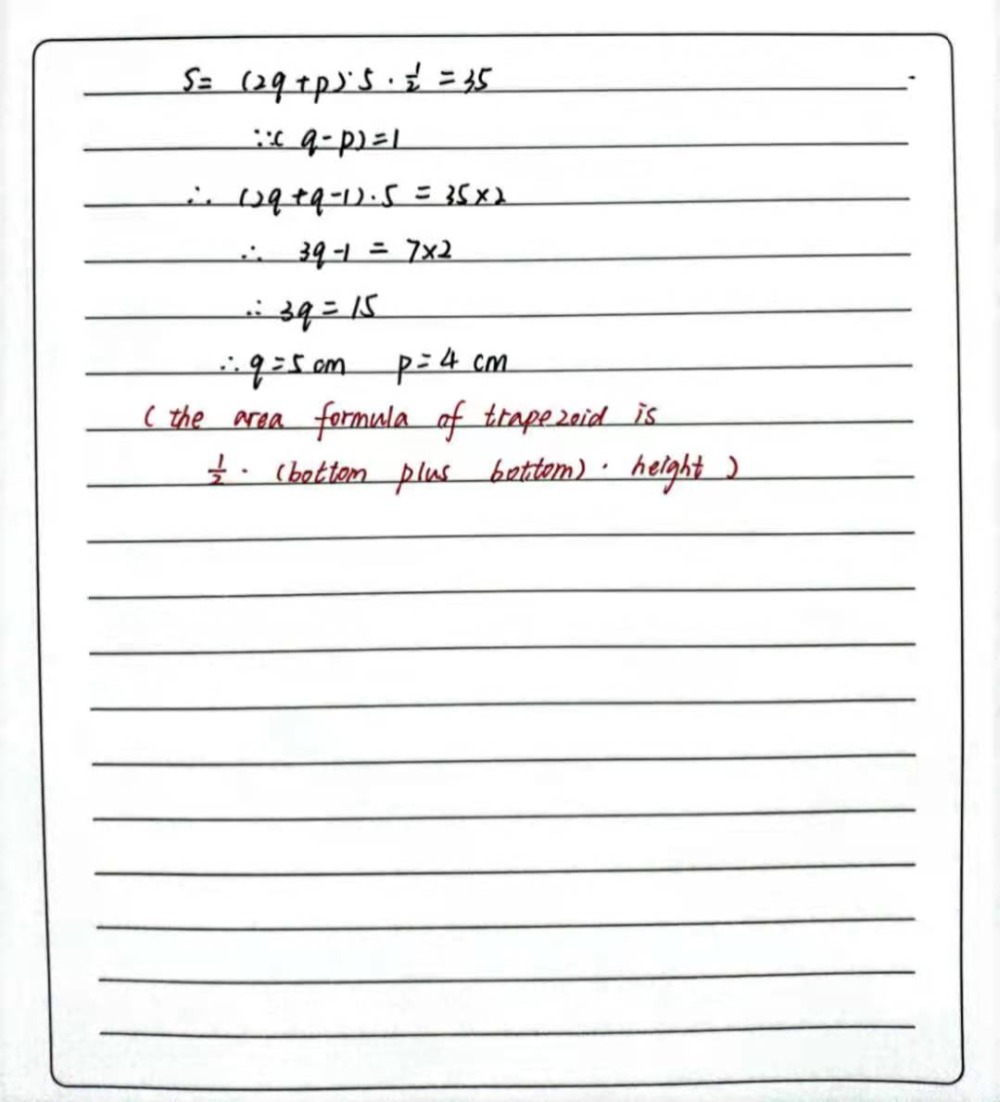 S= (2q+p)·5·½ =35
∵( q-p)=1
∴ (2q+q-1)·5 = 35×2
∴ 3q-1 = 7×2
∴ 3q = 15
∴ q=5 cm p=4 cm
( the area formula of trapezoid is
½ · (bottom plus bottom) · height )